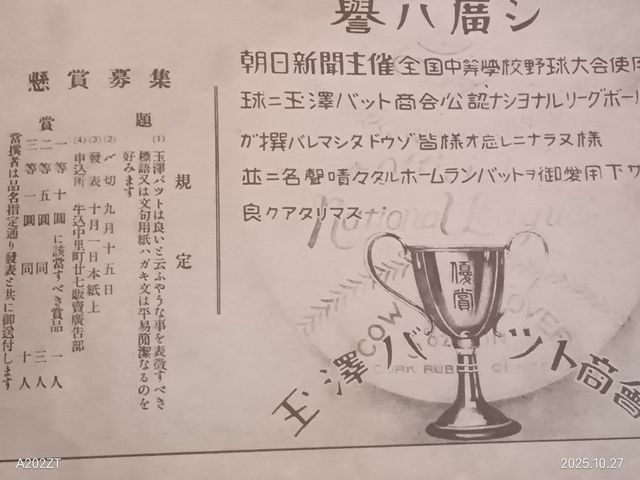 譽ハ廣シ
朝日新聞主催全国中等學校野球大会使用
球ニ玉澤バット商会公認ナショナルリーグボール
ガ撰バレマシタドウゾ皆様オ忘レニナラヌ様
並ニ名聲嘖々タルホームランバットヲ御愛用下サ
良クアタリマス
National League
優賞
COW
OVER
CORK RUBBER CENTER
玉澤バット商會
懸賞募集
規定
題
(1) 玉澤バットは良いと云ふやうな事を表徴すべき
標語又は文句用紙ハガキ文は平易簡潔なるのを
好みます
(2) 〆切 九月十五日
(3) 發表 十月一日本紙上
(4) 申込所 牛込中里町廿七販賣廣告部
賞
一等 十圓 に該當すべき賞品 一人
二等 五圓 同 三人
三等 一圓 同 十人
當撰者は品名指定通り發表と共に御送付します
A202ZT
2025.10.27